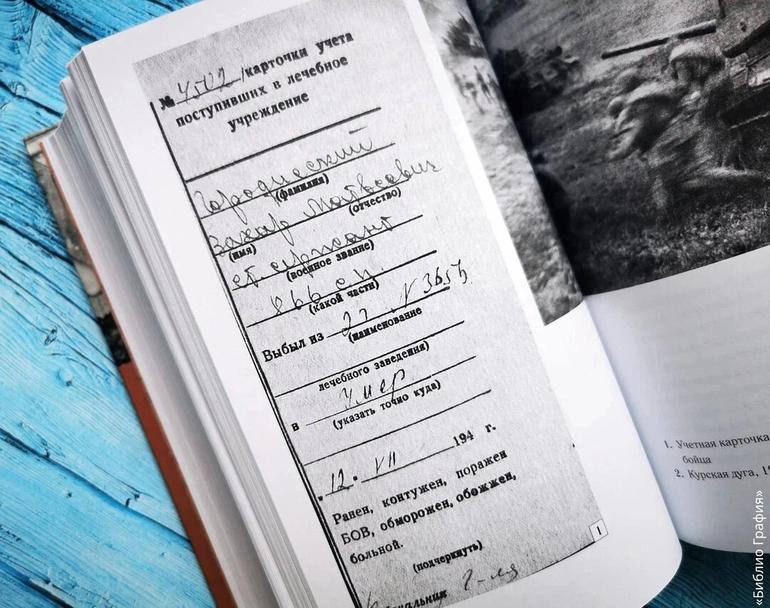 № 4502 /карточки учета
поступивших в лечебное
учреждение
Городисский
(фамилия)
Захар Матвеевич
(имя) (отчество)
ст. сержант
(военное звание)
866 сп.
(какой части)
Выбыл из
(наименование
лечебного заведения)
в умер
(указать точно куда)
12. VII 194 г.
Ранен, контужен, поражен
БОВ, обморожен, обожжен,
больной.
(подчеркнуть)
1
1. Учетная карточка
бойца
2. Курская дуга, 19
«Библио Графия»